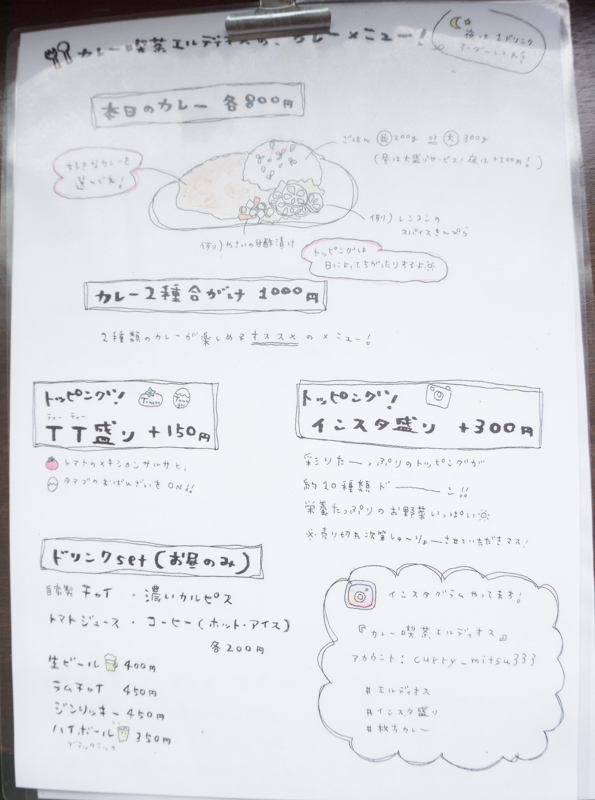 カレー喫茶エルディオスの、カレーメニュー!
夜は1ドリンク
オーダーしてね
本日のカレー 各800円
好きなカレーを
選んでね!
ごはん 並200g or 大300g
(昼は大盛りサービス!夜は+100円!)
例)レンコンの
スパイスきんぴら
例)やさいの甘酢漬け
トッピングは
日によってちがったりするよ
カレー2種合がけ 1000円
2種類のカレーが楽しめるオススメのメニュー!
トッピング!
ティー ティー
TT盛り +150円
トマトのメキシカンサルサと、
タマゴのおばんざいをON!!
トッピング!
インスタ盛り +300円
彩りたーっぷりのトッピングが
約10種類ドーーーン!!
栄養たっぷりのお野菜いっぱい
※売り切れ次第しゅーりょーさせていただきマス!
ドリンクset(お昼のみ)
自家製チャイ ・濃いカルピス
トマトジュース ・コーヒー(ホット・アイス)
各200円
生ビール 400円
ラムチャイ 450円
ジンリッキー 450円
ハイボール 350円
インスタグラムやってます!
『カレー喫茶エルディオス』
アカウント:curry_mitsu333
#エルディオス
#インスタ盛り
#枚方カレー